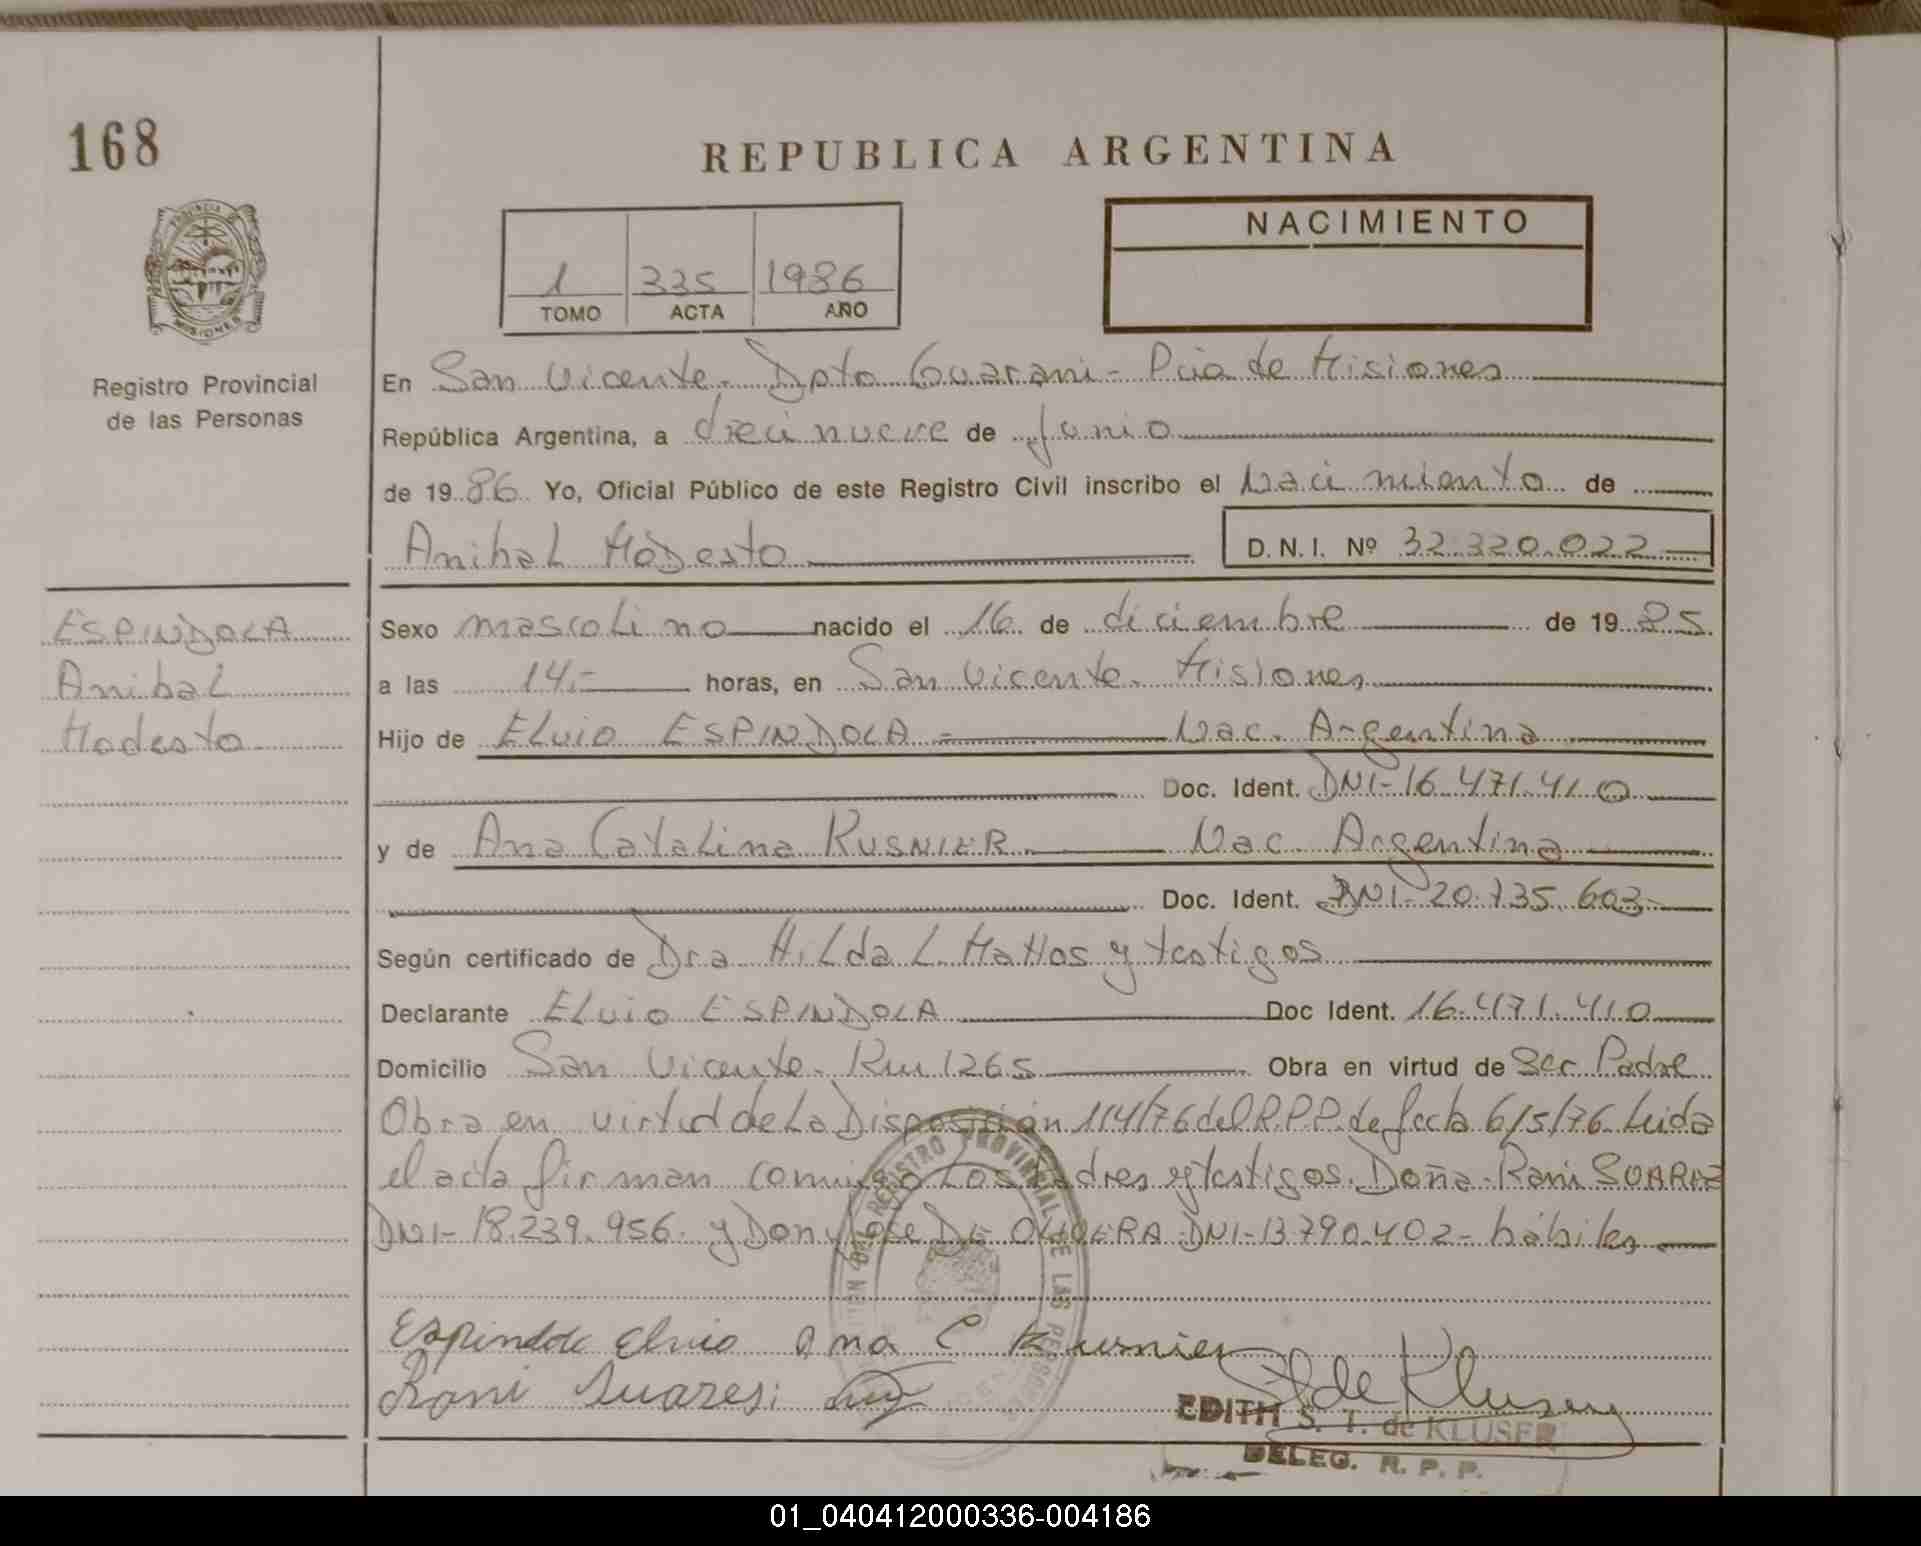 168
REPUBLICA ARGENTINA
NACIMIENTO
1 335 1986
TOMO ACTA AÑO
PROVINCIA DE
MISIONES
Registro Provincial
de las Personas
En San Vicente. Dpto Guarani - Pcia de Misiones
República Argentina, a diecinueve de Junio
de 19 86 Yo, Oficial Público de este Registro Civil inscribo el Nacimiento de
Anibal Modesto D.N.I. Nº 32.320.022
ESPINDOLA
Anibal
Modesto
Sexo masculino nacido el 16 de diciembre de 19 85
a las 14.- horas, en San Vicente. Misiones
Hijo de Elvio ESPINDOLA - Nac. Argentina
Doc. Ident. DNI-16.471.410
y de Ana Catalina KUSNIER Nac. Argentina
Doc. Ident. DNI-20.735.603
Según certificado de Dra Hilda L. Mattos y testigos
Declarante Elvio ESPINDOLA Doc Ident. 16.471.410
Domicilio San Vicente. Km 1265 Obra en virtud de Ser Padre
Obra en virtud de la Disposición 114/76 del R.P.P. de fecha 6/5/76. Leida
el acta firman conmigo los Padres y testigos. Doña. Rani SUAREZ
DNI-18.239.956. y Don Jose DE OLIVERA DNI-13.790.402- hábiles
Espindola Elvio Ana C Kusnier
Rani Suares
S T de Kluser
EDITH S. T. de KLUSER
DELEG. R. P. P.
REGISTRO PROVINCIAL DE LAS PERSONAS
01_040412000336-004186